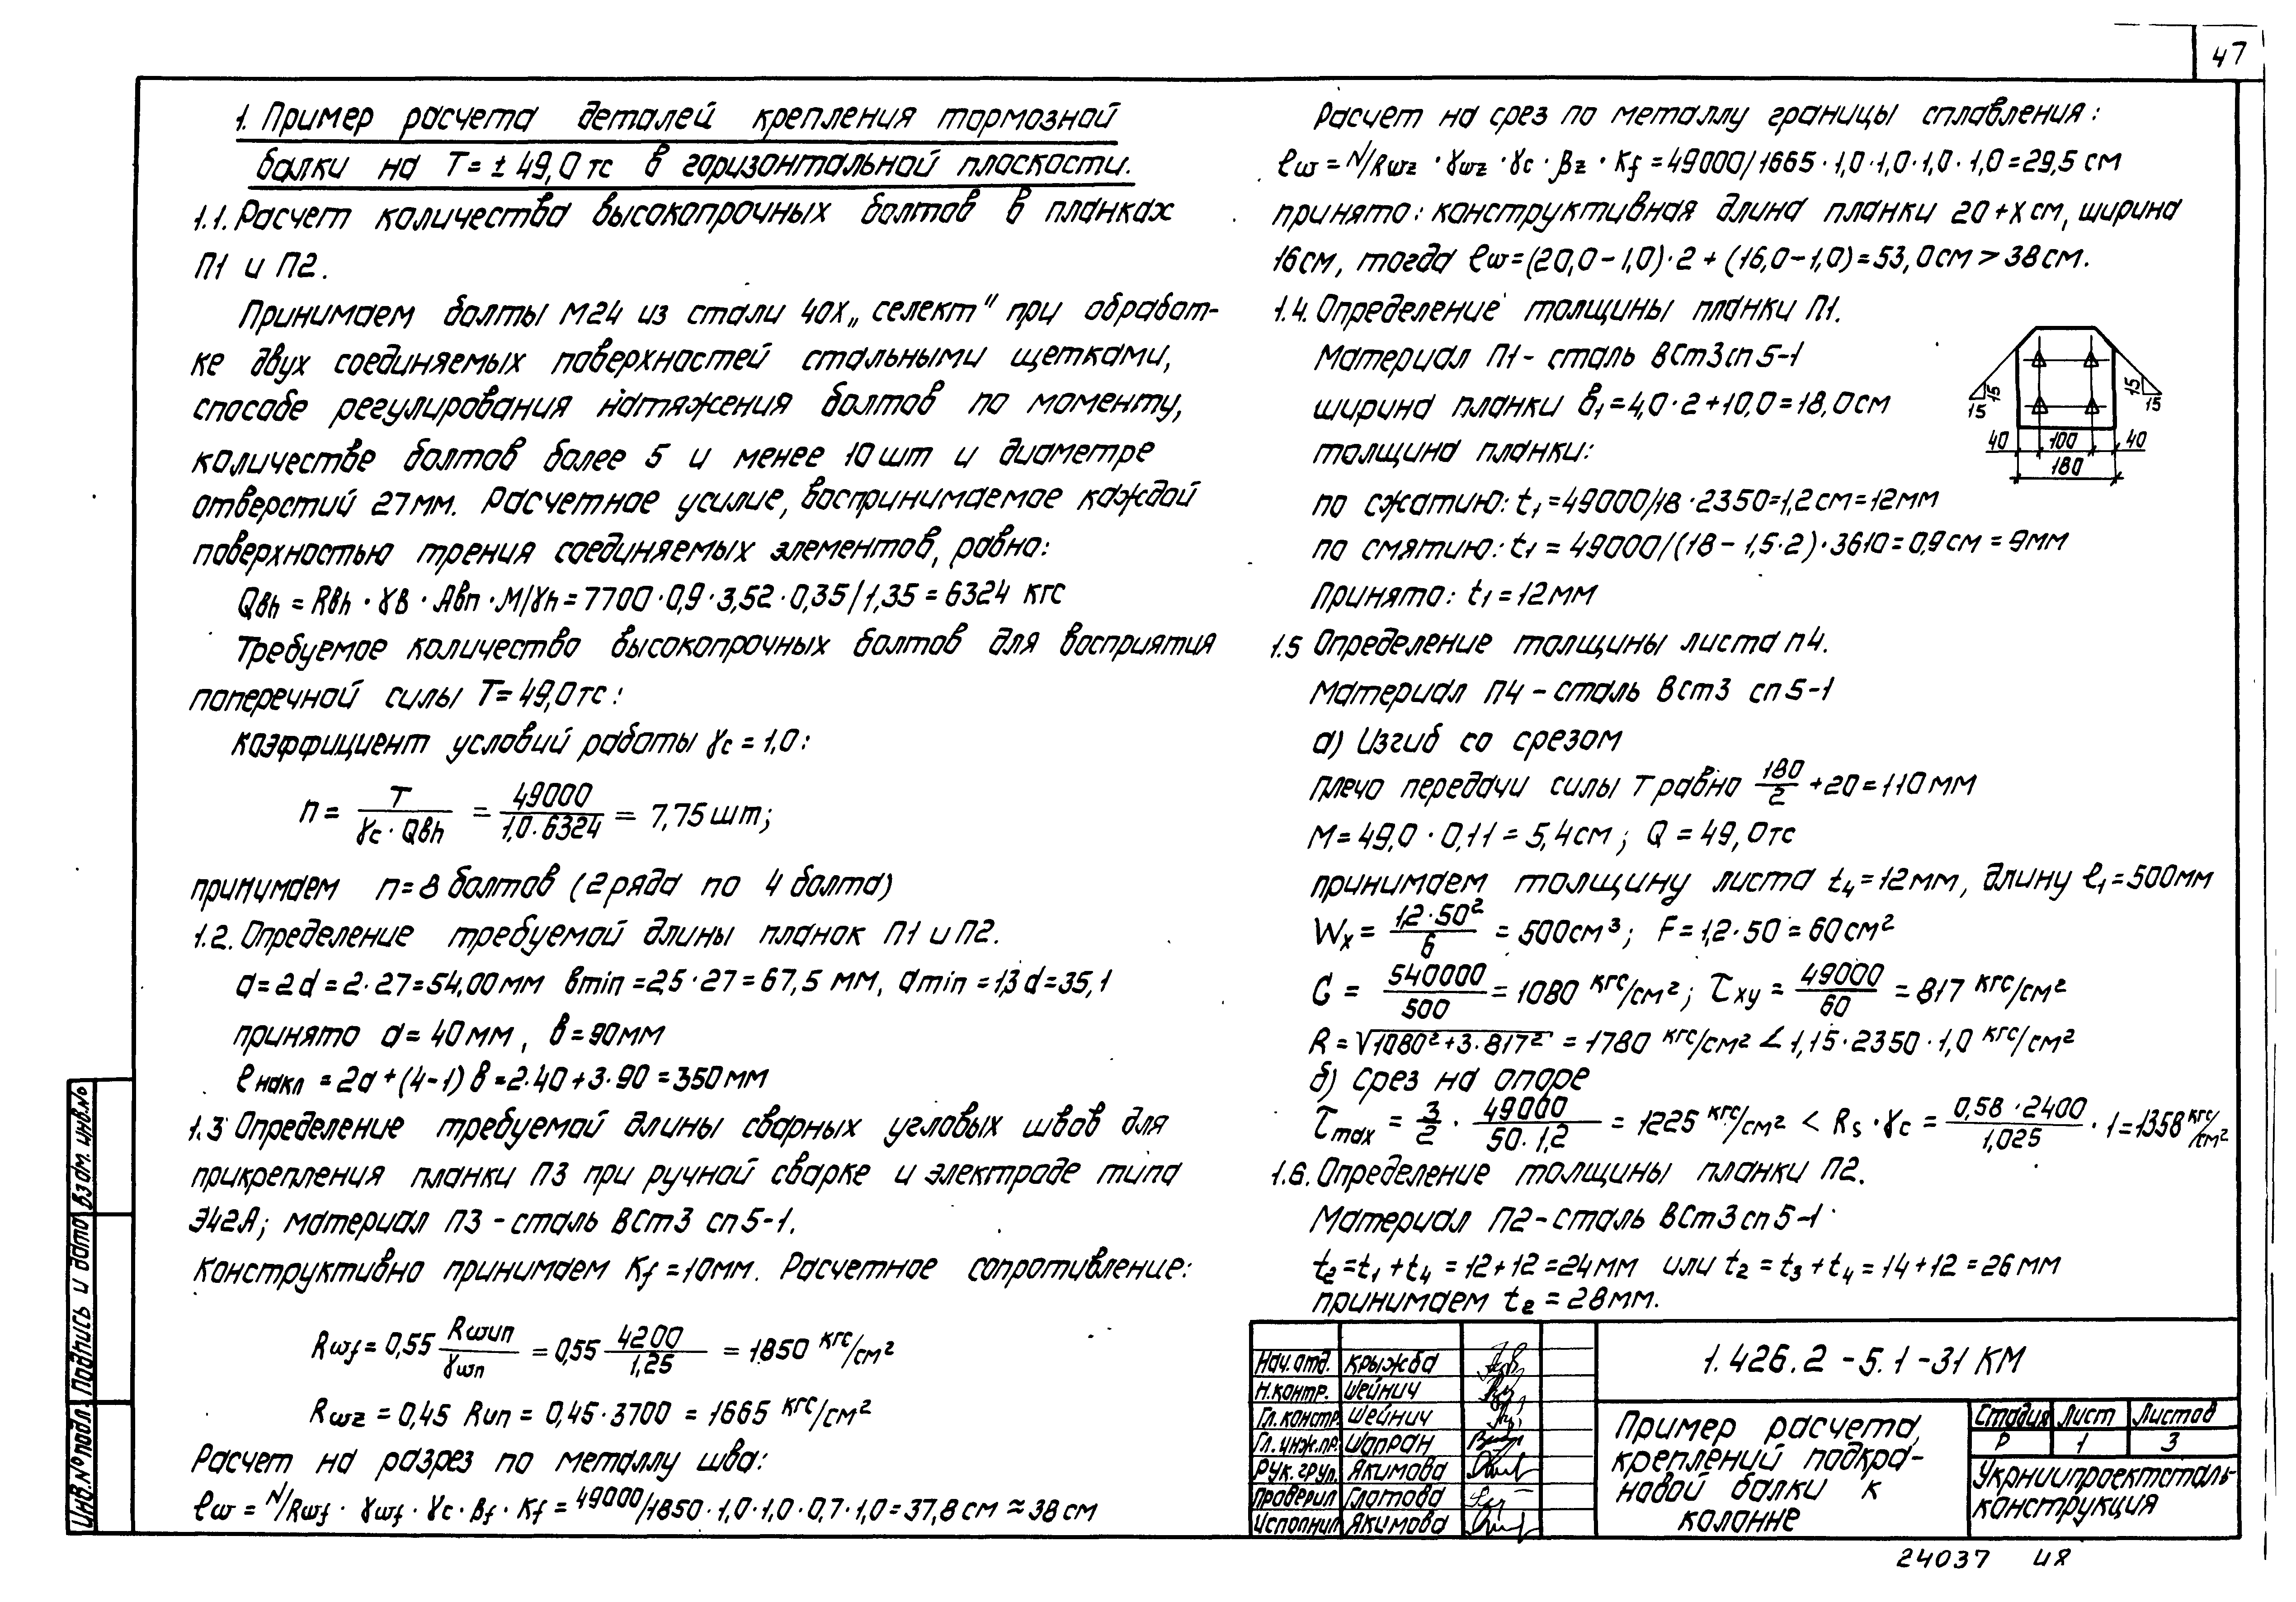 47
1. Пример расчета деталей крепления тормозной
балки на T = ± 49,0 тс в горизонтальной плоскости.
1.1. Расчет количества высокопрочных болтов в планках
П1 и П2.
Принимаем болты М24 из стали 40Х „селект" при обработ-
ке двух соединяемых поверхностей стальными щетками,
способе регулирования натяжения болтов по моменту,
количестве болтов более 5 и менее 10 шт и диаметре
отверстий 27 мм. Расчетное усилие, воспринимаемое каждой
поверхностью трения соединяемых элементов, равно:
Qвh = Rвh · γв · Aвп · М/γh = 7700 · 0,9 · 3,52 · 0,35 / 1,35 = 6324 кгс
Требуемое количество высокопрочных болтов для восприятия
поперечной силы T = 49,0 тс:
коэффициент условий работы γc = 1,0:
n = T / γc · Qвh = 49000 / 1,0 · 6324 = 7,75 шт;
принимаем n = 8 болтов (2 ряда по 4 болта)
1.2. Определение требуемой длины планок П1 и П2.
a = 2d = 2 · 27 = 54,00 мм вmin = 2,5 · 27 = 67,5 мм, amin = 1,3 d = 35,1
принято a = 40 мм, в = 90 мм
ℓ накл = 2a + (4-1) в = 2·40 + 3·90 = 350 мм
1.3 Определение требуемой длины сварных угловых швов для
прикрепления планки П3 при ручной сварке и электроде типа
Э42А; материал П3 - сталь ВСт3 сп5-1.
Конструктивно принимаем Kf = 10мм. Расчетное сопротивление:
Rωf = 0,55 Rωun / γωn = 0,55 4200 / 1,25 = 1850 кгс/см²
Rωz = 0,45 Run = 0,45 · 3700 = 1665 кгс/см²
Расчет на разрез по металлу шва:
ℓω = N/Rωf · γωf · γc · βf · Kf = 49000/1850 · 1,0 · 1,0 · 0,7 · 1,0 = 37,8 см ≈ 38 см
Расчет на срез по металлу границы сплавления:
ℓω = N/Rωz · γωz · γc · βz · Kf = 49000/1665 · 1,0 · 1,0 · 1,0 · 1,0 = 29,5 см
принято: конструктивная длина планки 20 + х см, ширина
16 см, тогда ℓω = (20,0 - 1,0) · 2 + (16,0 - 1,0) = 53,0 см > 38 см.
1.4. Определение толщины планки П1.
Материал П1 - сталь ВСт3сп5-1
ширина планки в₁ = 4,0 · 2 + 10,0 = 18,0 см
толщина планки:
по сжатию: t₁ = 49000/18 · 2350 = 1,2 см = 12 мм
по смятию: t₁ = 49000/(18 - 1,5·2) · 3610 = 0,9 см = 9мм
Принято: t₁ = 12 мм
15 15
15 15
40 100 40
180
1.5 Определение толщины листа П4.
Материал П4 - сталь ВСт3 сп5-1
а) Изгиб со срезом
плечо передачи силы T равно 180/2 + 20 = 110 мм
М = 49,0 · 0,11 = 5,4 см; Q = 49,0тс
принимаем толщину листа t₄ = 12 мм, длину ℓ₁ = 500 мм
Wx = 12 · 50² / 6 = 500 см³; F = 1,2 · 50 = 60 см²
G = 540000 / 500 = 1080 кгс/см²; τxy = 49000 / 60 = 817 кгс/см²
R = √1080² + 3 · 817² = 1780 кгс/см² < 1,15 · 2350 · 1,0 кгс/см²
б) срез на опоре
τmax = 3/2 · 49000 / 50 · 1,2 = 1225 кгс/см² < Rs · γc = 0,58 · 2400 / 1,025 · 1 = 1358 кгс/см²
1.6. Определение толщины планки П2.
Материал П2 - сталь ВСт3сп5-1
t₂ = t₁ + t₄ = 12 + 12 = 24 мм или t₂ = t₃ + t₄ = 14 + 12 = 26 мм
принимаем t₂ = 28 мм.
Инв.№подл. Подпись и дата Взам. инв.№
Нач. отд. Крыжба
Н. контр. Шейнич
Гл. констр. Шейнич
Гл. инж. пр. Шапран
Рук. груп. Якимова
Проверил Глотова
Исполнил Якимова
1.426.2 - 5.1 - 31 КМ
Пример расчета,
креплений подкра-
новой балки к
колонне
Стадия Лист Листов
Р 1 3
Укрниипроектсталь-
конструкция
24037 48